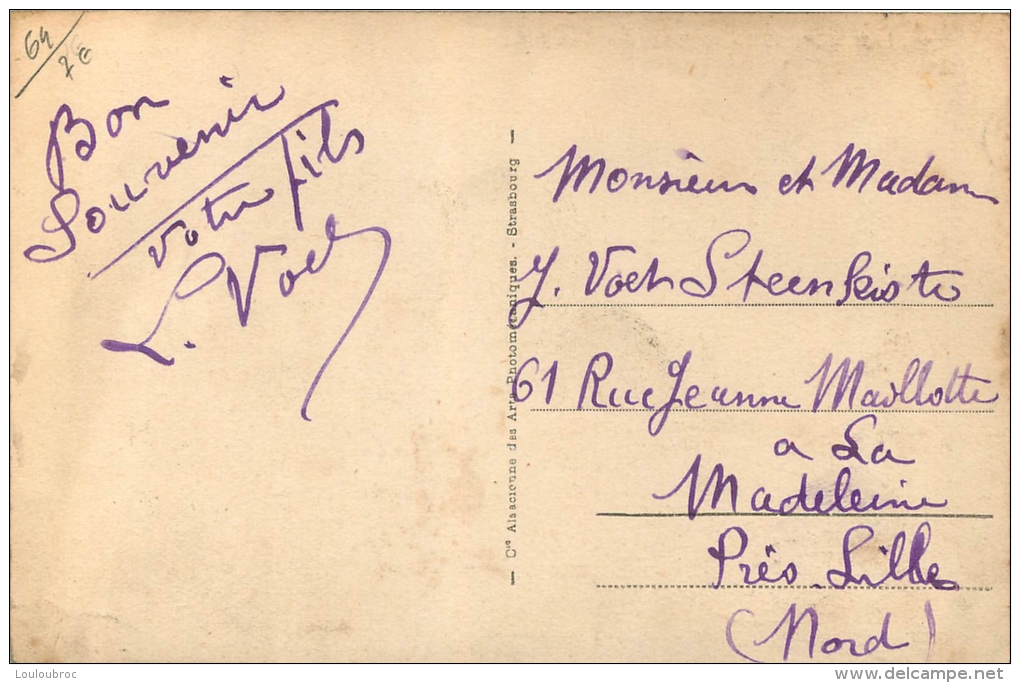 64
7€
Bon
Souvenir
Votre fils
L. Voet
— Cie Alsacienne des Arts Photomécaniques. - Strasbourg —
Monsieur et Madam
J. Voet Steenkiste
61 Rue Jeanne Maillotte
a La
Madeleine
Près Lille
(Nord)
Louloubroc
www.delcampe.net